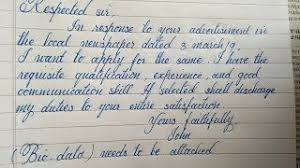 Respected sir,
In response to your advertisement in
the local newspaper dated 3 march/9,
I want to apply for the same. I have the
requisite qualification, experience, and good
communication skill. If selected shall discharge
my duties to your entire satisfaction
Yours faithfully,
John
(Bio-data) needs to be attached